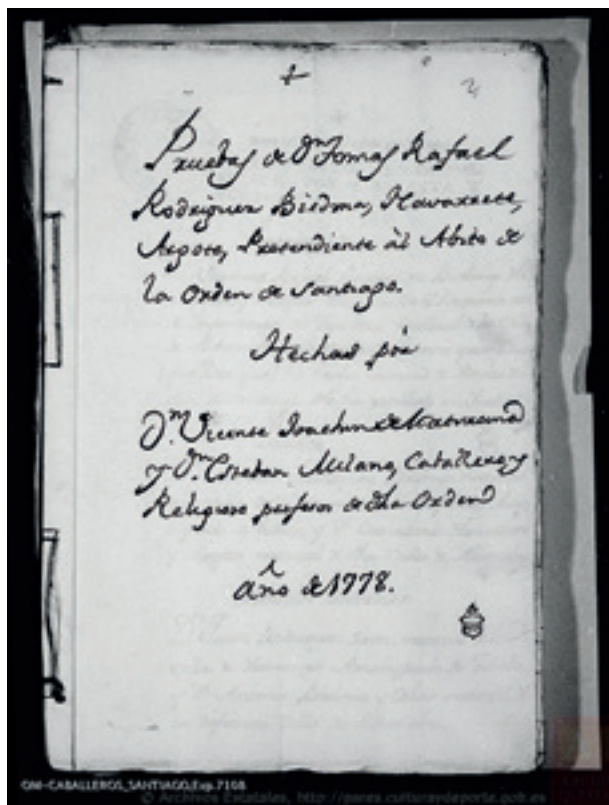 Pruebas de Dn. Tomas Rafael
Rodriguez Biedma, Navarrete,
Argote, Pretendiente àl Abito de
la Orden de Santiago.
Hechas pòr
Dn. Vicente Joachin de
y Dn. Esteban Milano, Caballero, y
Religioso profesos de dha Orden
año de 1778.
OM-CABALLEROS_SANTIAGO,Exp.7108
© Archivos Estatales, http://pares.culturaydeporte.gob.es